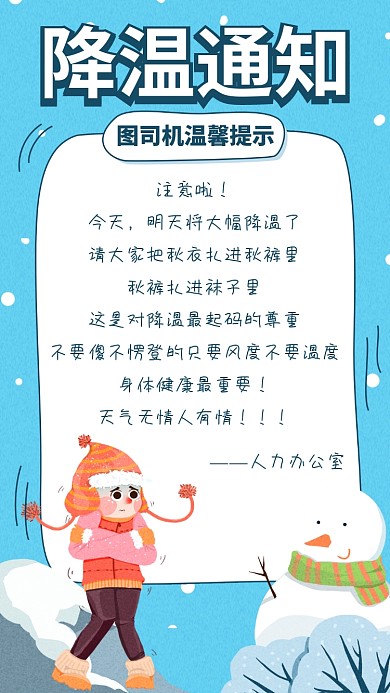 降温通知
图司机温馨提示
注意啦！
今天，明天将大幅降温了
请大家把秋衣扎进秋裤里
秋裤扎进袜子里
这是对降温最起码的尊重
不要像不愣登的只要风度不要温度
身体健康最重要！
天气无情人有情！！！
——人力办公室